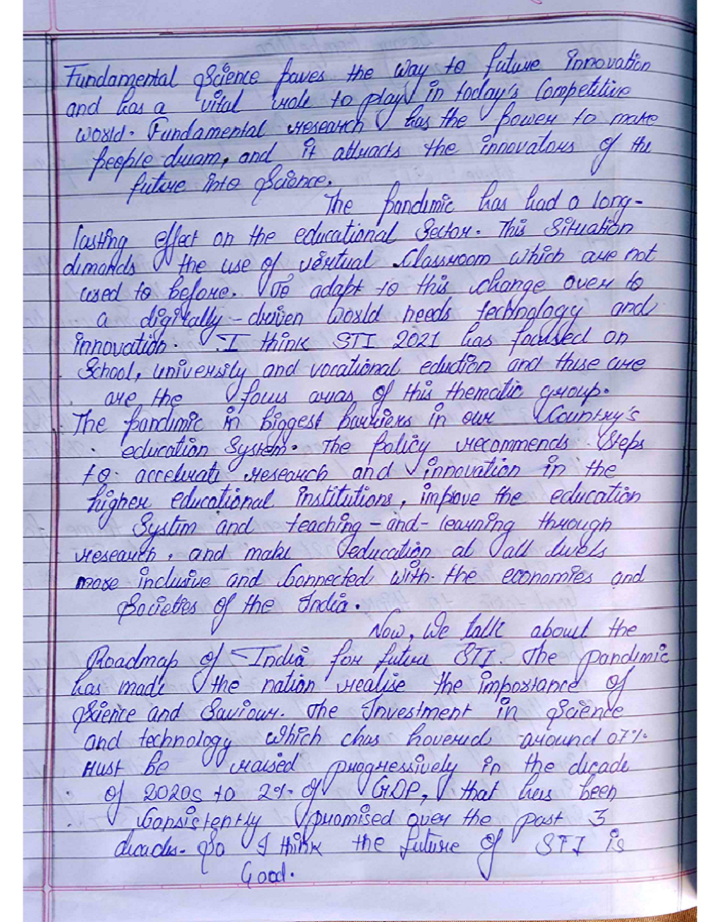 Fundamental Science paves the way to future Innovation
and has a vital role to play in today's Competitive
world. Fundamental research has the power to make
people dream, and it attracts the innovators of the
future into Science.
The pandemic has had a long-
lasting effect on the educational Sector. This Situation
demands the use of virtual Classroom which are not
used to before. To adapt to this change over to
a digitally-driven world needs technology and
innovation. I think STI 2021 has focused on
School, university and vocational eduction and these are
are the focus areas of this thematic group.
The pandemic in biggest barriers in our Country's
education System. The policy recommends Steps
to accelerate research and innovation in the
higher educational Institutions, improve the education
System and teaching-and-learning through
research, and make education at all levels
more inclusive and Connected with the economies and
Societies of the India.
Now, We talk about the
Roadmap of India for future STI. The pandemic
has made the nation realise the importance of
Science and Saviour. The Investment in Science
and technology which has hovered around 07%
Must be raised progressively in the decade
of 2020s to 2% of GDP, that has been
Consistently promised over the past 3
decades. So I think the future of STI is
Good.